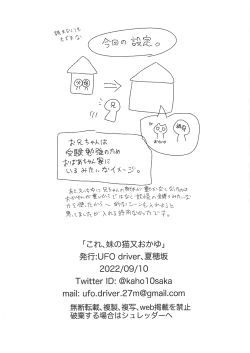 読まなくても
大丈夫
今回の設定。
父 母
兄
お兄ちゃんは
受験勉強のため
おばあちゃん家に
いるみたいなイメージ。
「これ、妹の猫又おかゆ」
発行:UFO driver、夏穂坂
2022/09/10
Twitter ID: @kaho10saka
mail: ufo.driver.27m@gmail.com
無断転載、複製、複写、web掲載を禁止
破棄する場合はシュレッダーへ